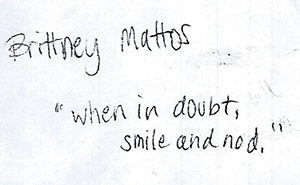 Brittney Mattos
"when in doubt,
smile and nod."